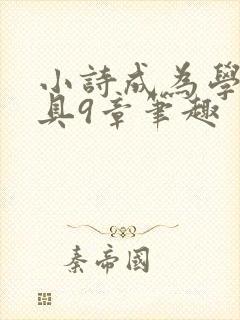 小詩成為學
具9章筆趣
秦帝國